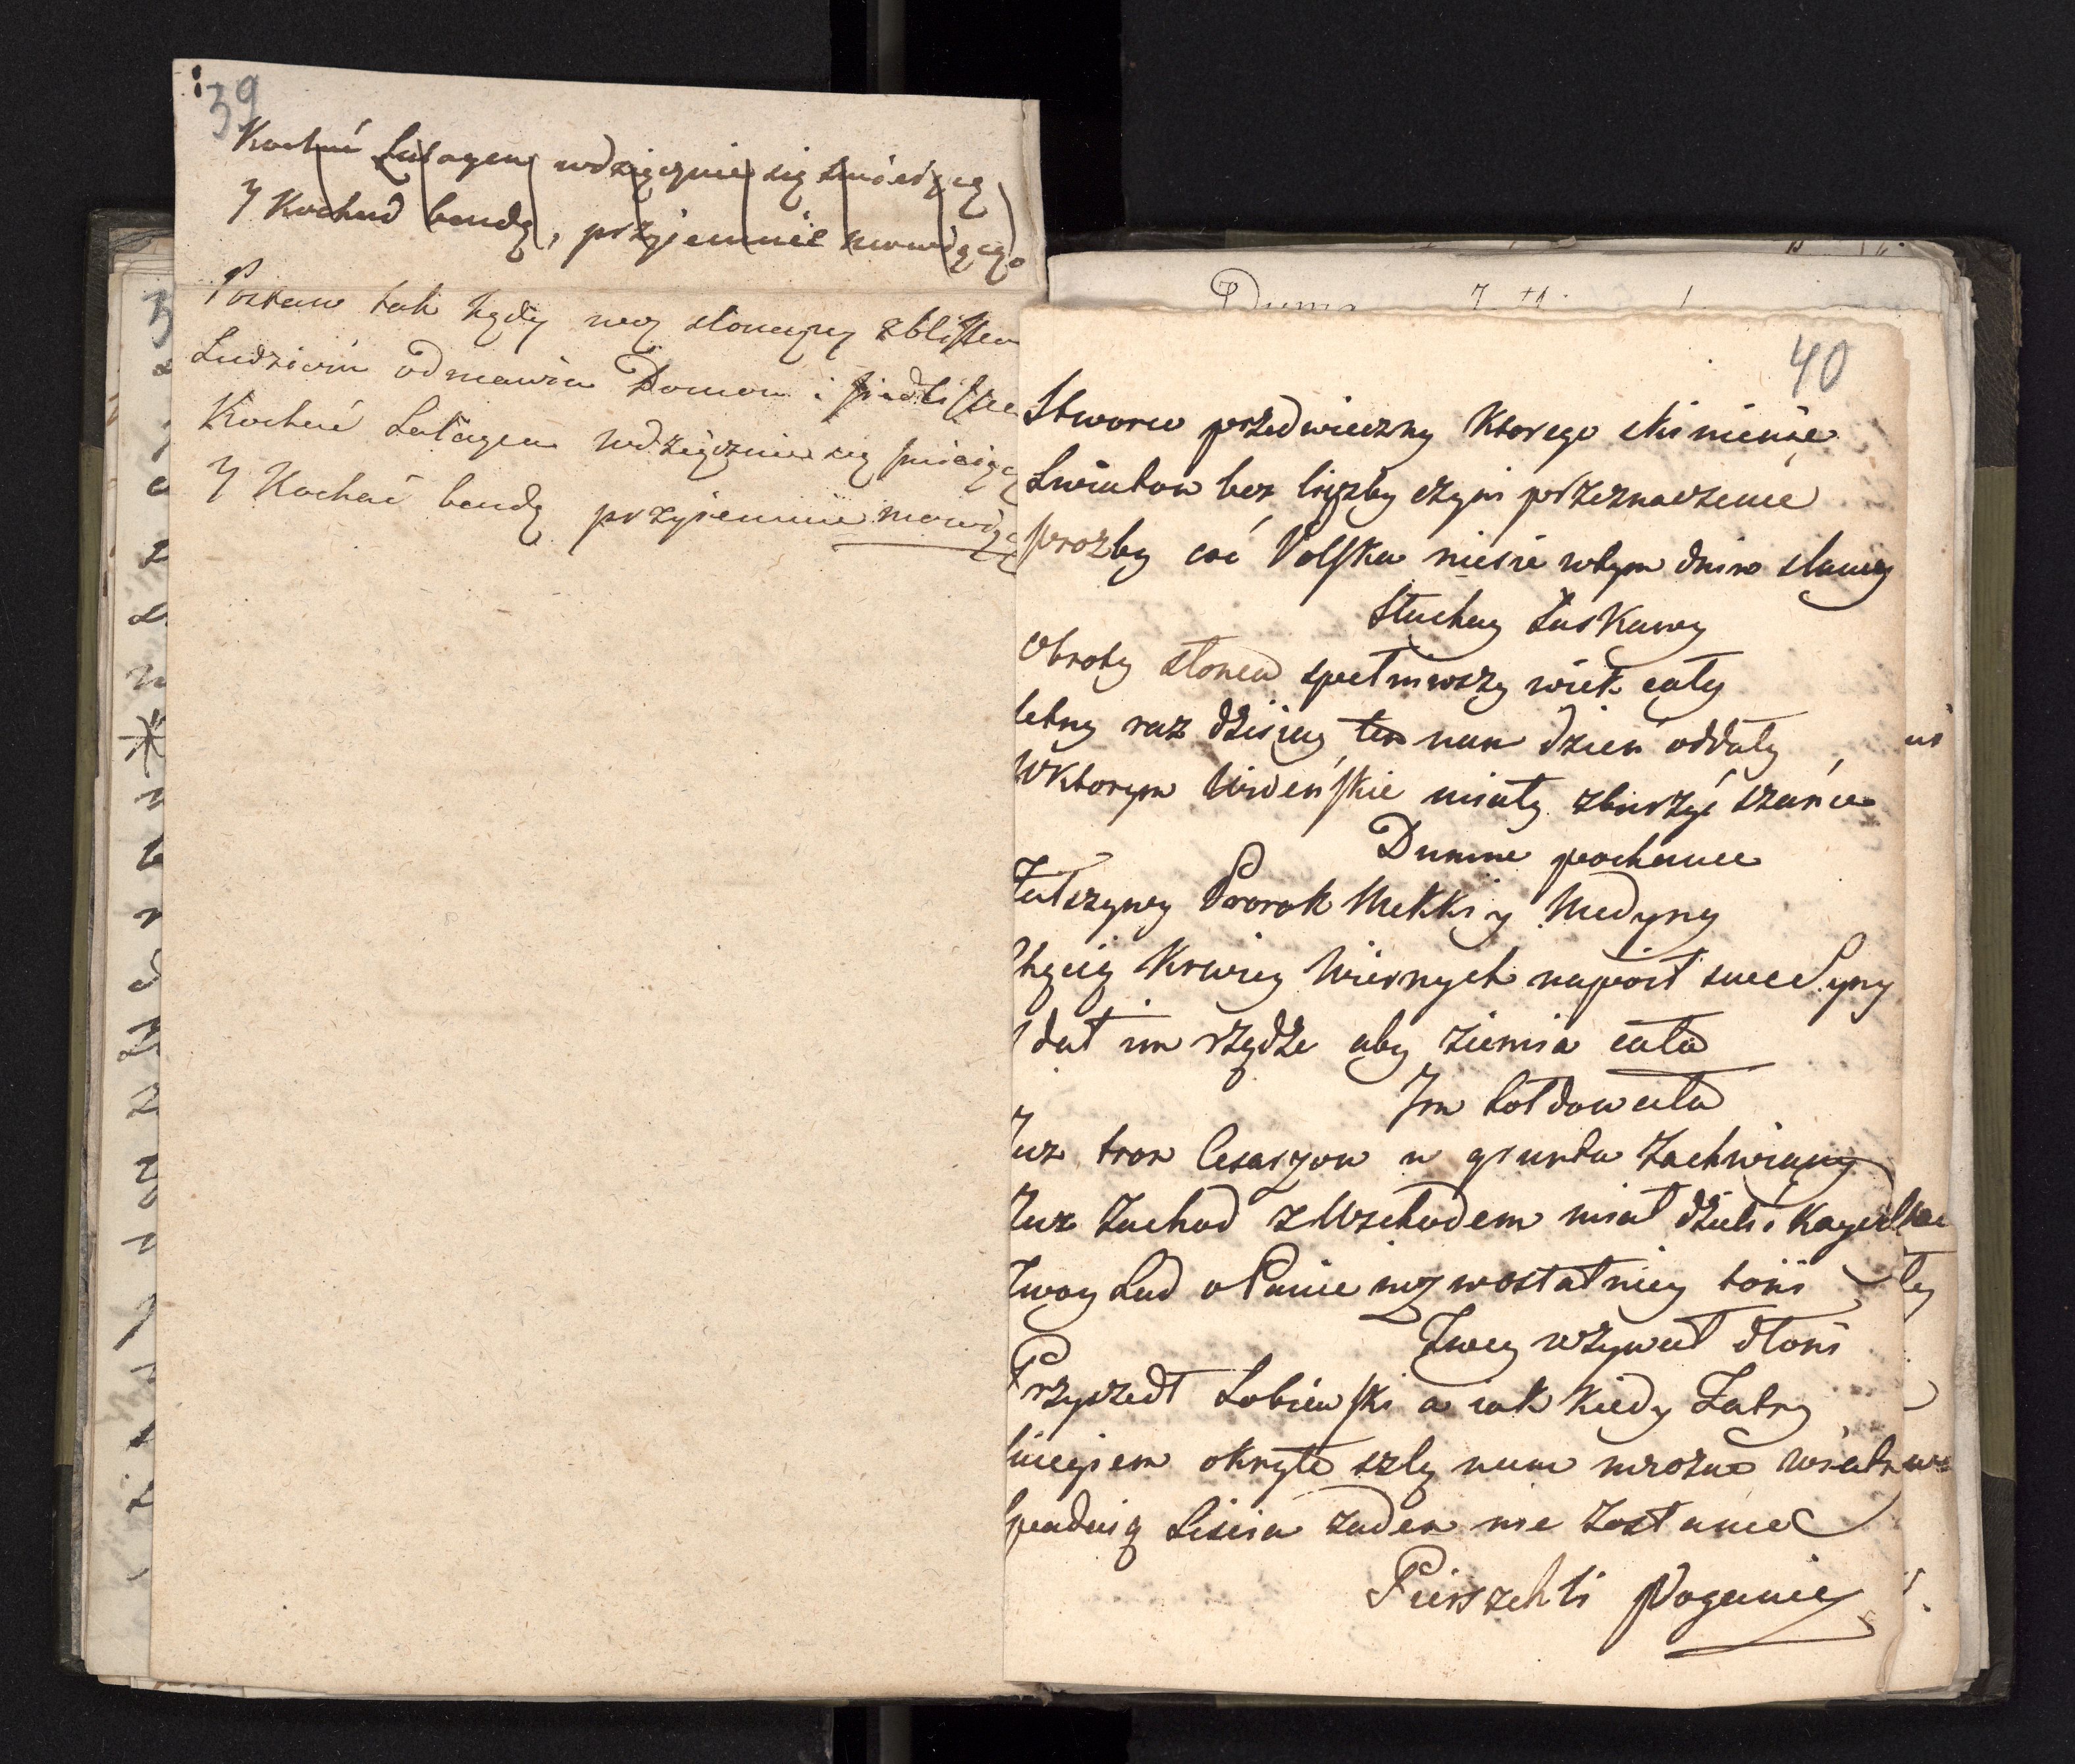 39
Kochać Lalagen wdzięcznie się śmieiącą
Y Kochać bendę, przyiemnie mowiącą.
Postaw tak kędy woz słonczny zbliska
Ludziom odmawia Domow i siedliska
Kochać Lalagen wdzięcznie się smieiącą
Y Kochać bendę przyiemnie mowiącą
40
Stworco przedwieczny Ktorego skinienie
Swiatow bez liczby czyni przeznaczenie
prozby coć Polska niesie wtym dniu sławy
Słuchay Łaskawy
Obroty słonca spełniwszy wiek cały
setny raz dzisiay ten nam dzien oddały
Wktorym Wideńskie miały zburzyć szańce
Dumne pochance
Fałszywy Prorok Mekki y Medyny
Chęcią Krwiey Wiernych napoił swe Syny
I dał im rządze aby ziemia cała
Im hołdowała
Juz tron Cesarzow w gruntu zachwiany
Juz Zachod z Wschodem miał dzielić Kaydany
Twoy Lud o Panie iuz wostatniey toni
Twey wzywał dłoni
Przyszedł Sobieński a iak kiedy Tatry
sniegiem okryte szlą nam mrozne wiatry
spadaią Liscia zaden nie zostanie
Pierzchli Poganie